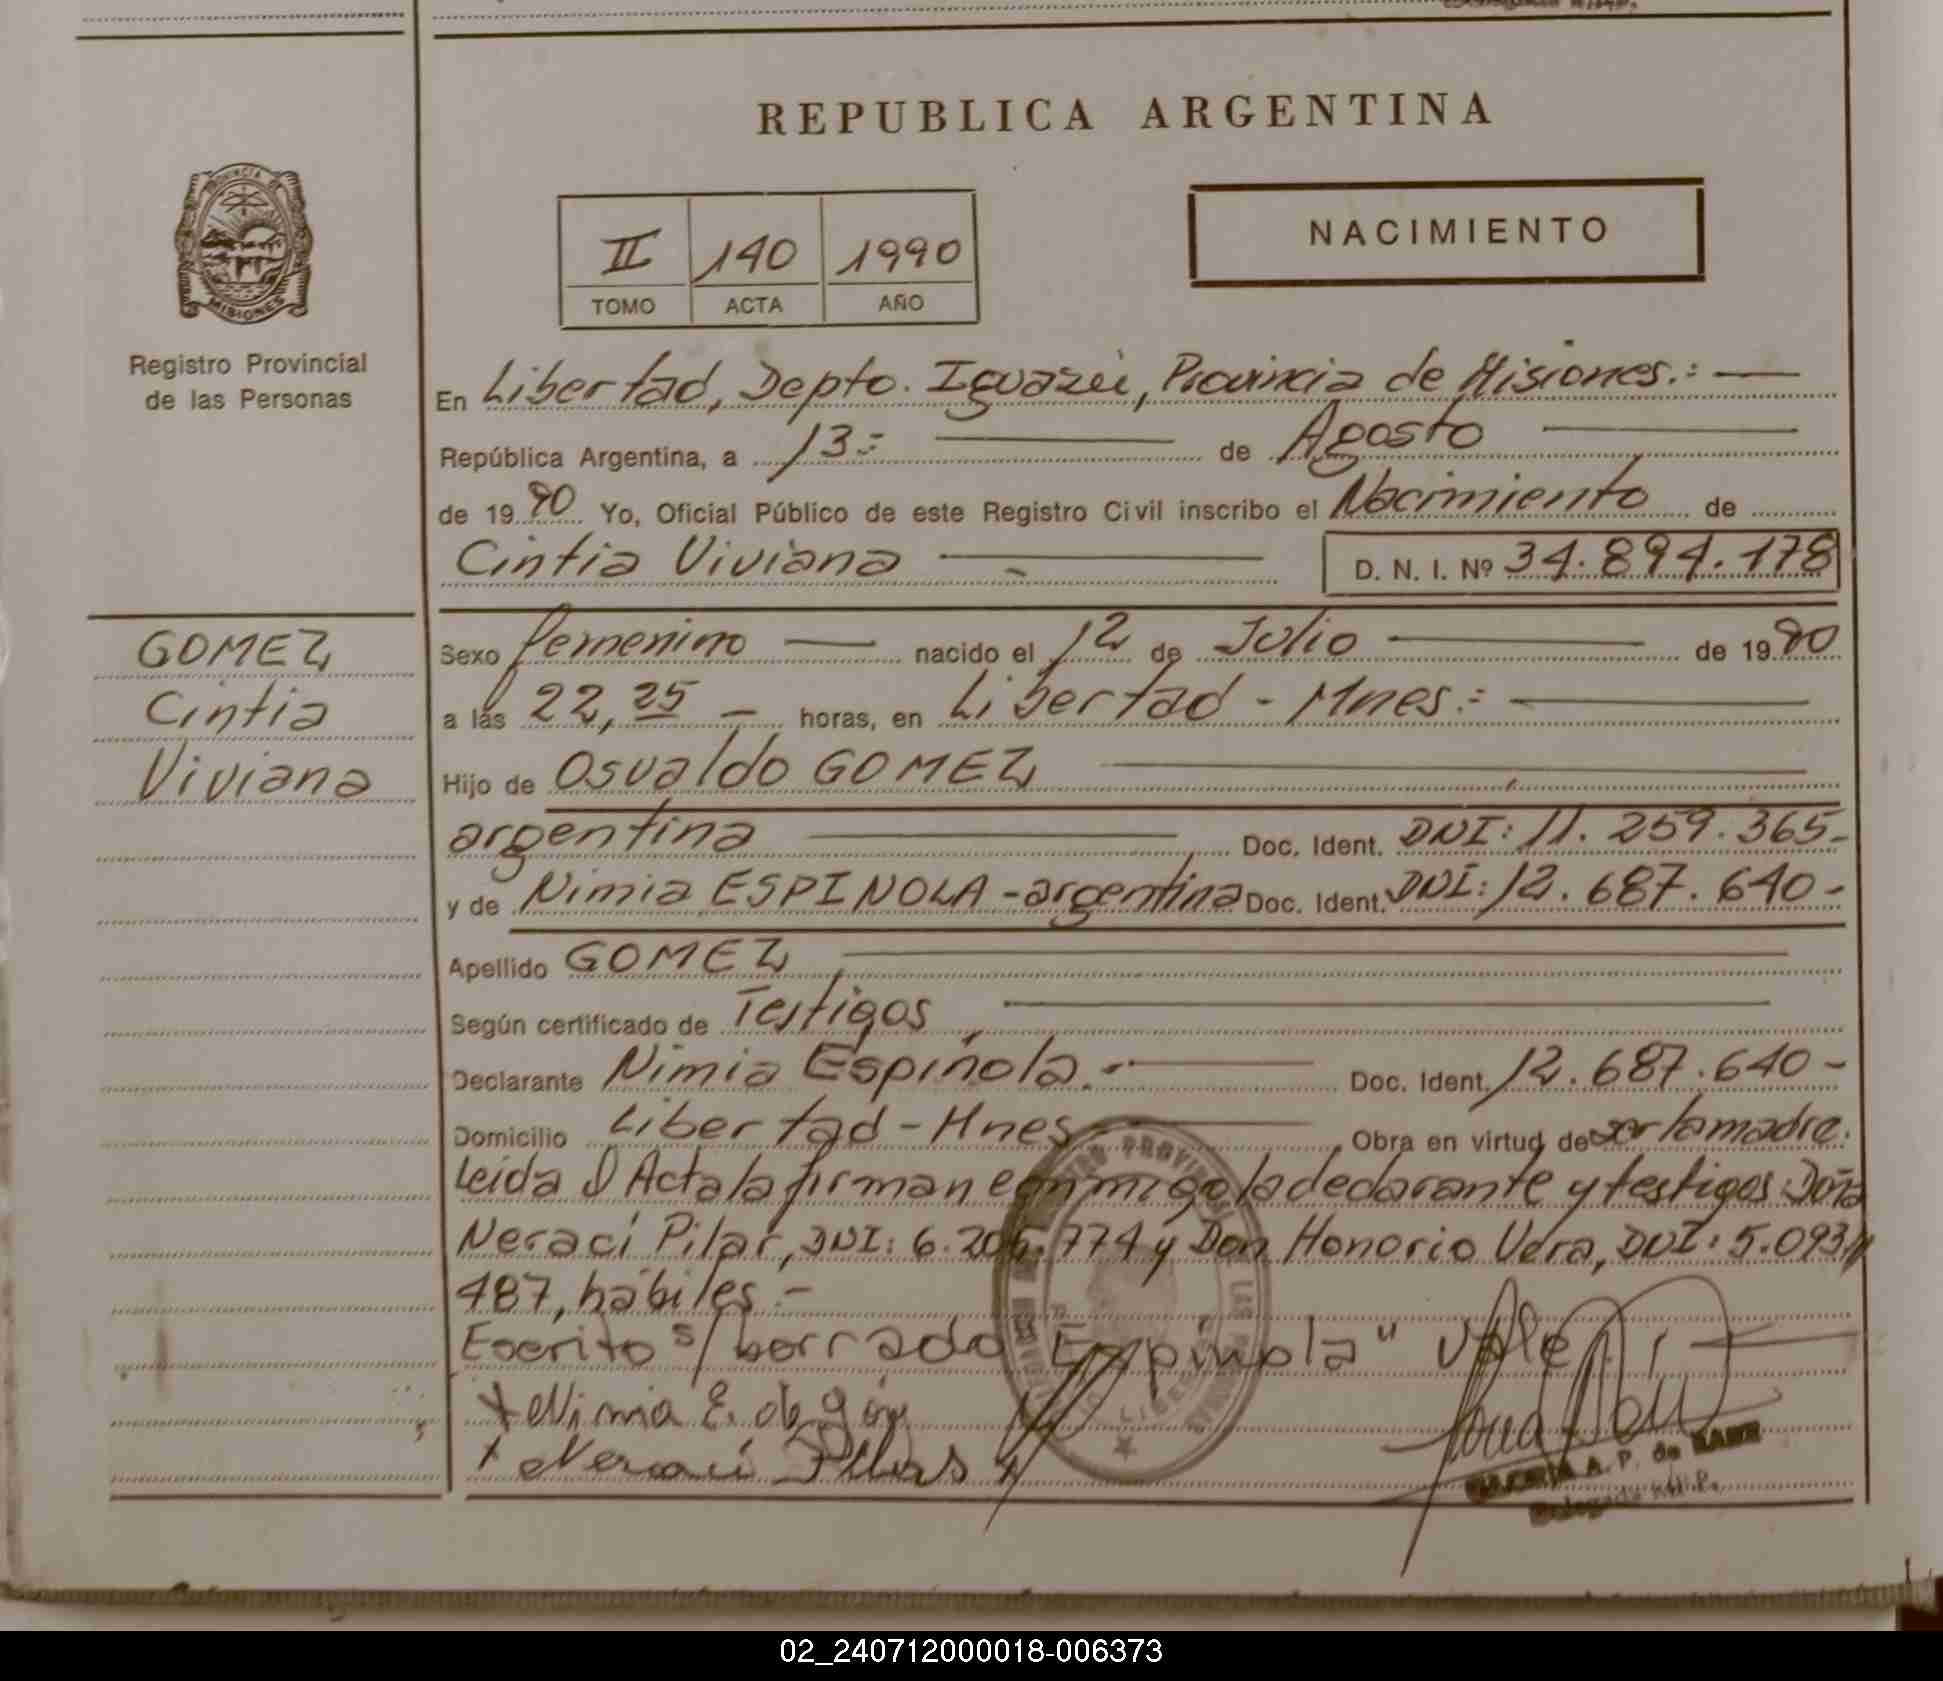 REPUBLICA ARGENTINA
PROVINCIA DE
MISIONES
Registro Provincial
de las Personas
II 140 1990
TOMO ACTA AÑO
NACIMIENTO
En Libertad, Depto. Iguazú, Provincia de Misiones.:
República Argentina, a 13:- de Agosto
de 1990 Yo, Oficial Público de este Registro Civil inscribo el Nacimiento de
Cintia Viviana D. N. I. Nº 34.894.178
GOMEZ
Cintia
Viviana
Sexo femenino nacido el 12 de Julio de 1990
a las 22,25 - horas, en Libertad - Mnes.:
Hijo de Osvaldo GOMEZ
argentina Doc. Ident. DNI: 11.259.365-
y de Nimia ESPINOLA - argentina Doc. Ident. DNI: 12.687.640-
Apellido GOMEZ
Según certificado de Testigos
Declarante Nimia Espíñola.- Doc. Ident. 12.687.640-
Domicilio Libertad - Mnes Obra en virtud de ser la madre.
Leida el Acta la firman conmigo la declarante y testigos: Doña
Neraci Pilar, DNI: 6.206.774 y Don Honorio Vera, DNI: 5.093//
487, hábiles.-
Escrito s/ borrado Espínola" Vale
Nimia E. de
Neraci
A. P. de
02_240712000018-006373